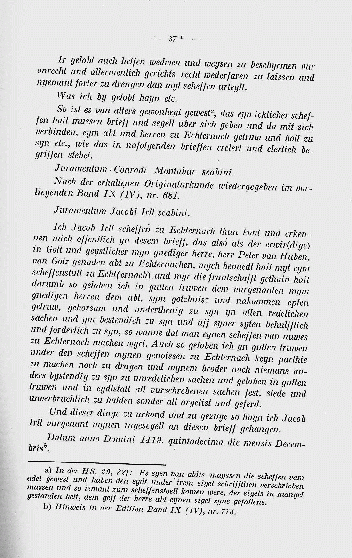 37 *
Ir gelobt auch helfen wedwen und weysen zu beschyrmen vur
onrecht und allermenlich gerichts recht wederfaren zu laissen und
nyemant forter zu drengen dan myt scheffen urteyll.
Was ich hy gelobt hayn etc.
So ist es von alters gewonheit gewest, das eyn icklicher schef-
fen hait mussen brieff und segell uber sich geben und da mit sich
verbinden, eym abt und herren zu Echternach getruw und holt zu
syn etc., wie das in nafolgenden brieffen erclert und clerlich be-
griffen stehet.
Juramentum Conradi Montabur scabini.
Nach der erhaltenen Originalurkunde wiedergegeben im vor-
liegenden Band IX (IV), nr. 681.
Juramentum Jacobi Iell scabini.
Ich Jacob Iell scheffen zu Echternach thun kunt und erken-
nen mich offentlich yn desem brieff, das also als der eerwirdiger
in Gott und geystlicher myn gnediger herre, herr Peter van Huben,
van Gotz genaden abt zu Echternachen, mych beneedt hait myt eym
scheffenstull zu Echt(ernach) und myr die fruntschafft gethain hait
darumb so geloben ich in guten truwen dem vorgenanten myn
gnedigen herren dem abt, sym gotzhuiss und nakummen epten
getruw, gehorsam und underthenig zu syn yn allen redelichen
sachen und ym bestendich zu syn und uff syner syten behulfflich
und forderlich zu syn, so wanne dat man eynen scheffen van nuwes
zu Echternach machen wyrt. Auch so geloben ich yn guden truwen
under den scheffen mynen genoissen zu Echternach keyn parthie
zu machen noch zu dragen und mynem broder noch niemans an-
ders bystendig zu syn zu unredelichen sachen und geloben in gutten
truwen und in eydtstatt all vurschreben sachen fest, stede und
unverbruchlich zu halden sonder all argelist und geferd.
Und dieser dinge zu urkond und zu gezuge so hayn ich Jacob
Iell vurgenant mynen ingesegell an diesen brieff gehangen.
Datum anno Domini 1419, quintodecimo die mensis Decem-
bris b.
a) In der HS. 29, 221: Es syen van alders mayssen die scheffen vem
adel gewest und haben den eydt under irem sigel schrifftlich verschrieben
mussen und so iemant zum scheffenstuell komen were, der sigels in mangel
gestanden hett, dem gaff der herre abt eynen sigel syns gefallens.
b) Hinweis in der Edition Band IX (IV), nr. 774.